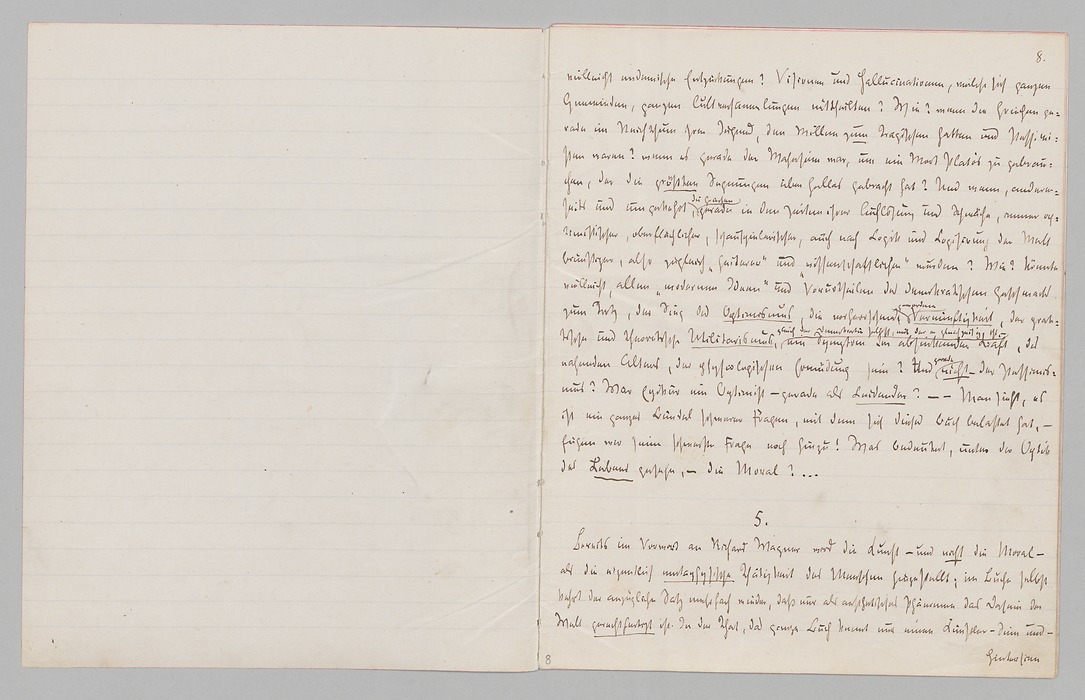 8.
vielleicht endemische Entzückungen? Visionen und Hallucinationen, welche sich ganzen
Gemeinden, ganzen Cultversammlungen mittheilten? Wie? wenn die Griechen ge-
rade im Reichthum ihrer Jugend, den Willen zum Tragischen hatten und Pessimi-
sten waren? wenn es gerade der Wahnsinn war, um ein Wort Plato's zu gebrau-
chen, der die größten Segnungen über Hellas gebracht hat? Und wenn, anderer-
die Griechen
seits und umgekehrt gerade in den Zeiten ihrer Auflösung und Schwäche, immer op-
timistischer, oberflächlicher, schauspielerischer, auch nach Logik und Logisirung der Welt
brünstiger, also zugleich „heiterer“ und „wissenschaftlicher“ wurden? Wie? könnte
vielleicht, allen „modernen Ideen“ und Vorurtheilen des demokratischen Geschmacks
gewordene
zum Trotz, der Sieg des Optimismus, die vorherrschend Vernünftigkeit, der prak-
gleich der Demokratie selbst, mit der er gleichzeitig ist, –
tische und theoretische Utilitarismus, ein Symptom der absinkenden Kraft, des
gerade
nahenden Alters, der physiologischen Ermüdung sein? Und nicht – der Pessimis-
mus? War Epikur ein Optimist – gerade als Leidender? – – Man sieht, es
ist ein ganzes Bündel schwerer Fragen, mit dem sich dieses Buch belastet hat, –
fügen wir seine schwerste Frage noch hinzu! Was bedeutet, unter der Optik
des Lebens gesehn, – die Moral? ...
5.
Bereits im Vorwort an Richard Wagner wird die Kunst – und nicht die Moral –
als die eigentlich metaphysische Thätigkeit des Menschen hingestellt; im Buche selbst
kehrt der anzügliche Satz mehrfach wieder, daß nur als aesthetisches Phänomen das Dasein der
Welt gerechtfertigt ist. In der That, das ganze Buch kennt nur einen Künstler-Sinn und –
Hintersinn
8